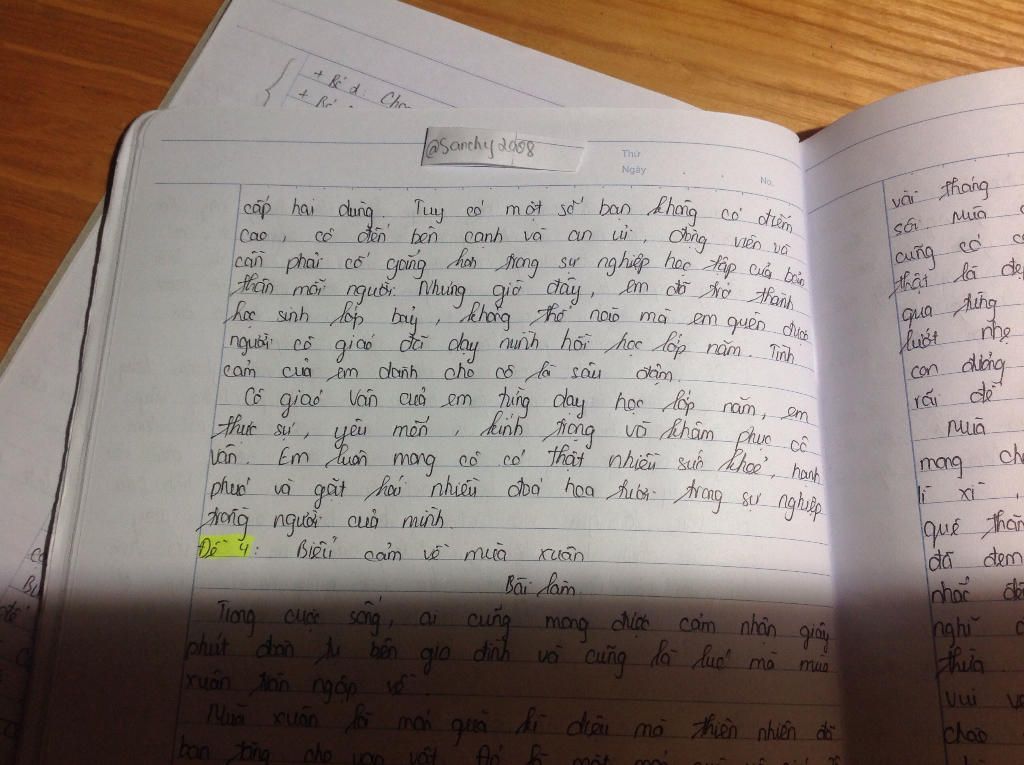 + Bé d: Cho
+ Bé
@Sanchy2008
Thứ
Ngày
No.
cấp hai dùng. Tuy có một số bạn không có điểm
cao, cô đến bên cạnh và an ủi, động viên và
cần phải cố gắng hơn trong sự nghiệp học tập của bản
thân mỗi người. Nhưng giờ đây, em đã trở thành
học sinh lớp bảy, không thể nào mà em quên được
người cô giáo đã dạy mình hồi học lớp năm. Tình
cảm của em dành cho cô là sâu đậm.
Cô giáo Vân của em từng dạy học lớp năm, em
thực sự, yêu mến, kính trọng và khâm phục cô
Vân. Em luôn mong cô có thật nhiều sức khoẻ, hạnh
phúc và gặt hái nhiều đoá hoa tươi trong sự nghiệp
trồng người của mình.
Đề 4: Biểu cảm về mùa xuân
Bài làm
Trong cuộc sống, ai cũng mong được cảm nhận giây
phút đoàn tụ bên gia đình và cũng là lúc mà mùa
xuân tràn ngập về.
Mùa xuân là món quà kì diệu mà thiên nhiên đã
ban tặng cho vạn vật. Đó là một món quà
vài tháng
sôi. Mùa
cũng có
thật là đẹp
qua từng
lướt nhẹ
con đường
rãi để
Mùa
mang ch
lì xì,
qué thàn
đã đem
nhắc đến
nghỉ
thừa
vui v
chào